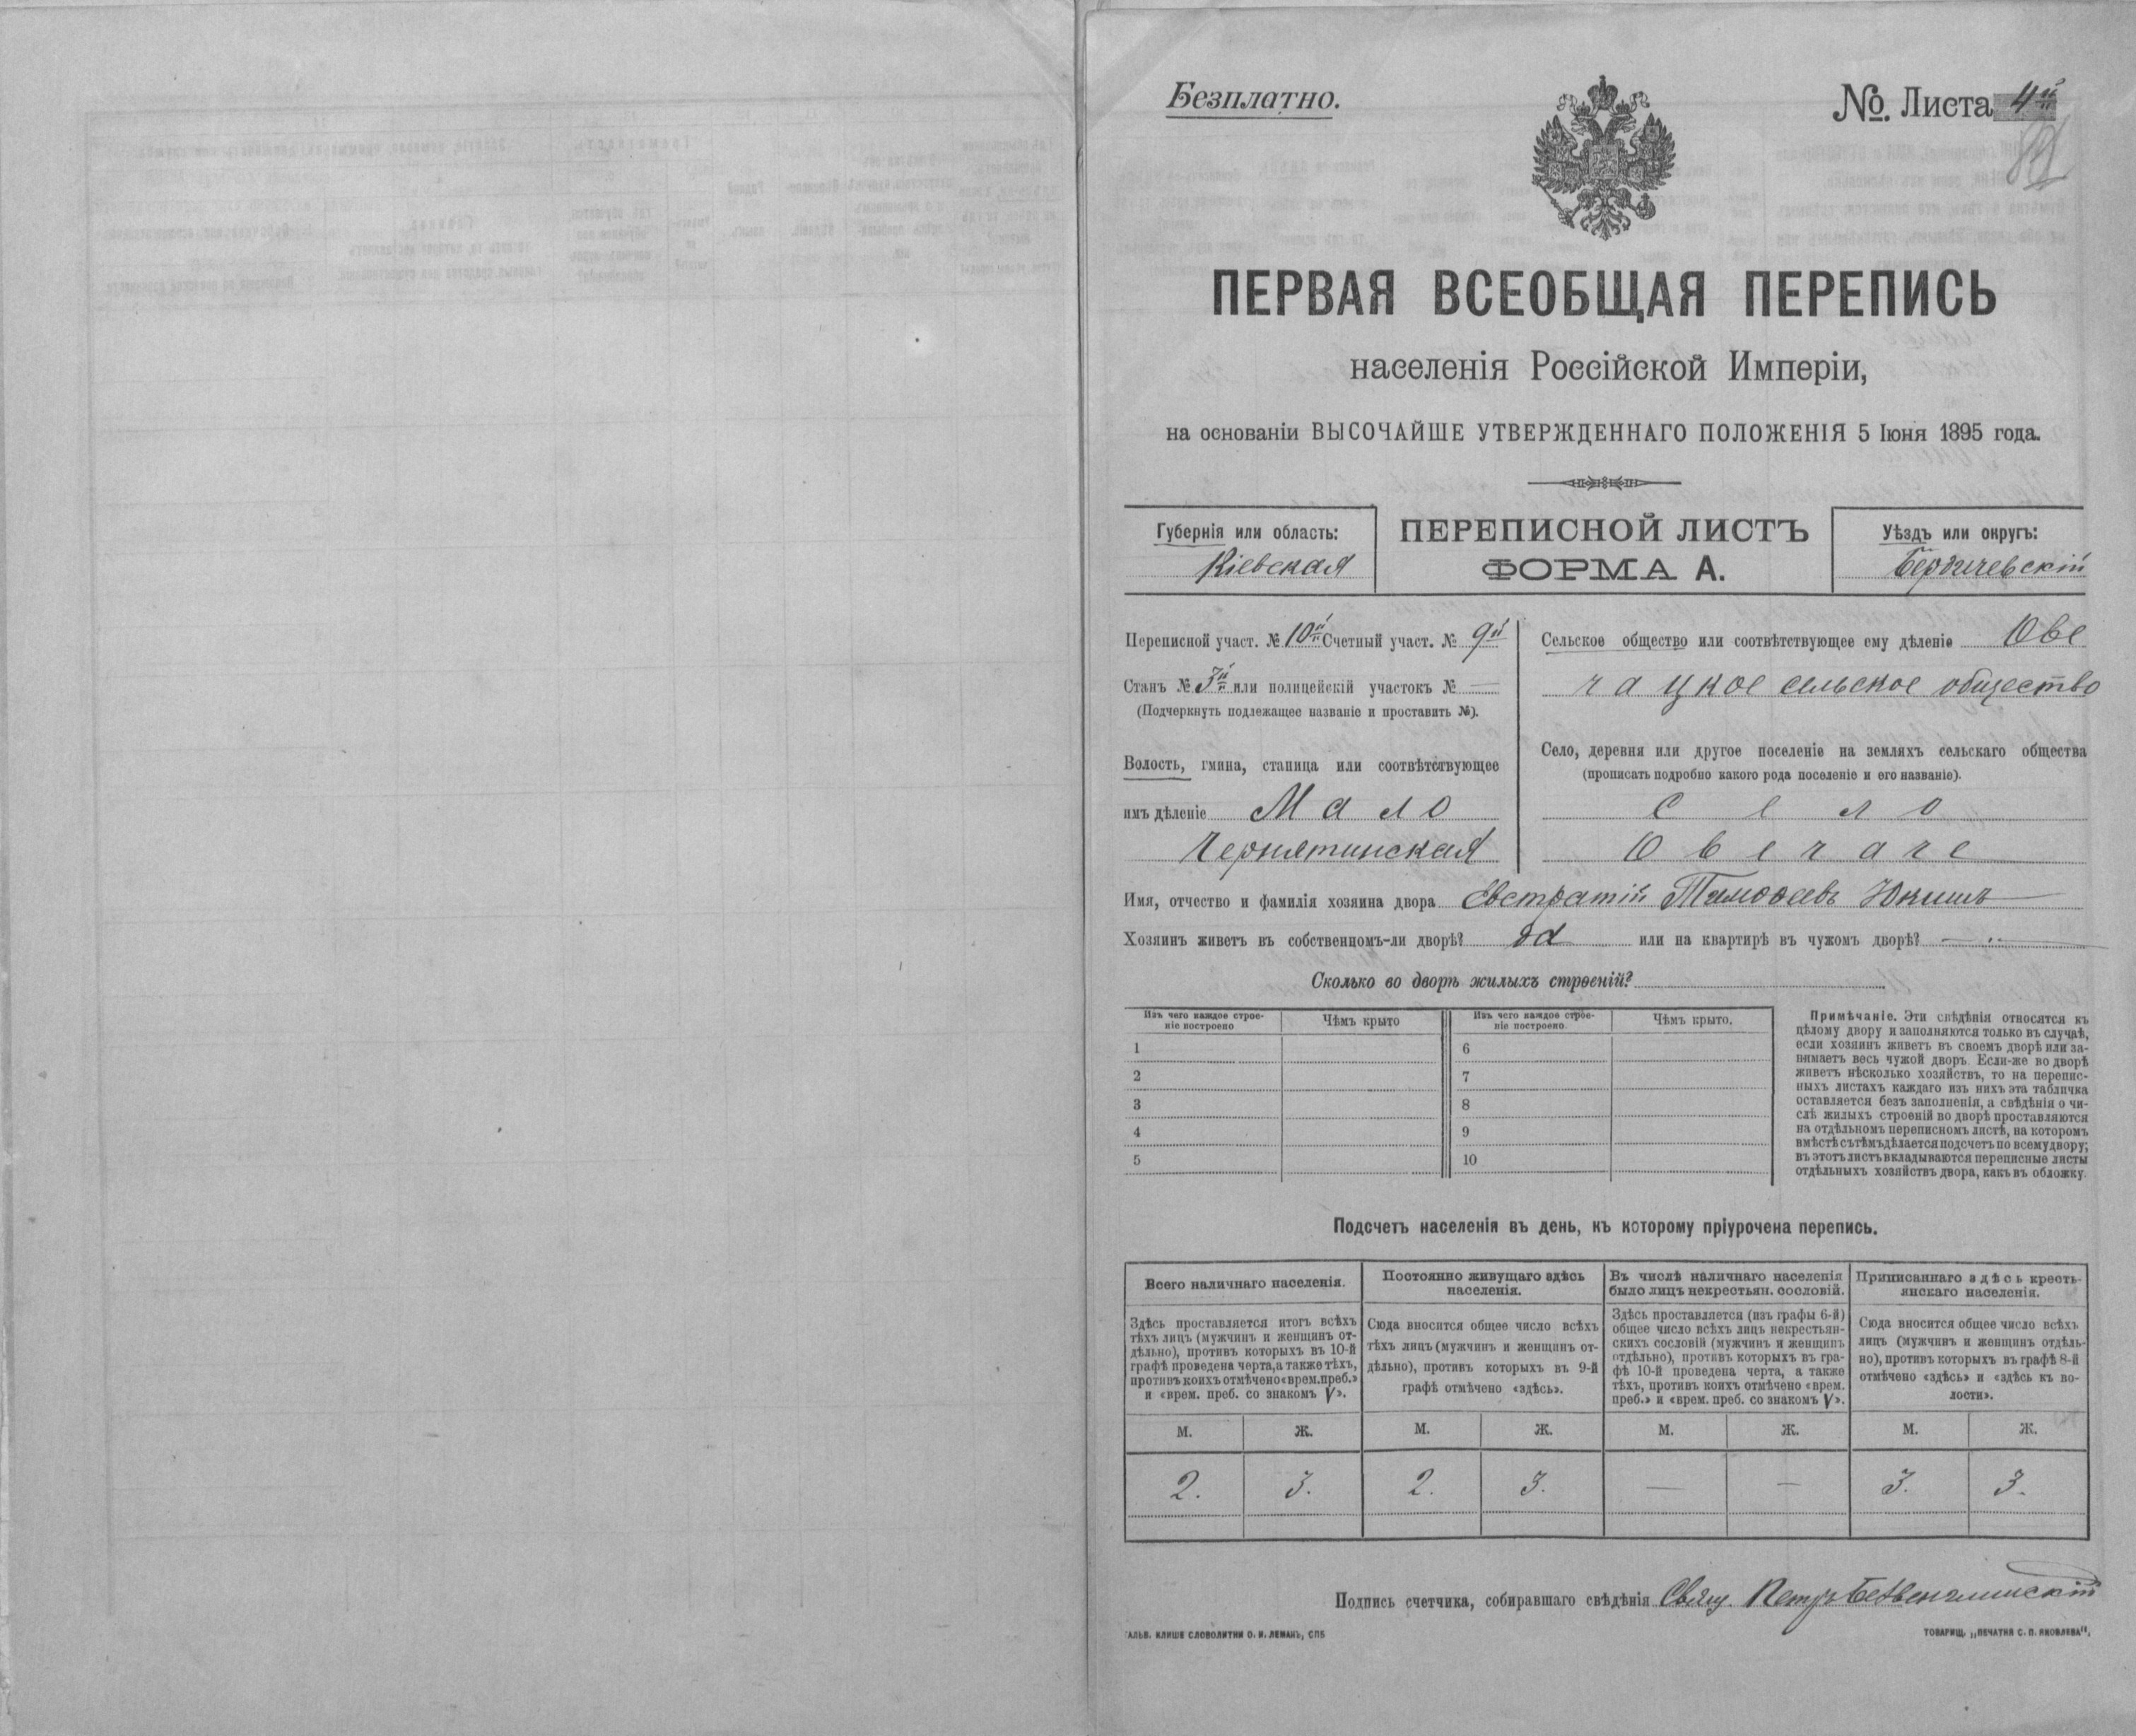 Безплатно.
№. Листа 4й
ПЕРВАЯ ВСЕОБЩАЯ ПЕРЕПИСЬ
населенія Россійской Имперіи,
на основаніи ВЫСОЧАЙШЕ УТВЕРЖДЕННАГО ПОЛОЖЕНІЯ 5 Іюня 1895 года.
Губернія или область:
Кіевская
ПЕРЕПИСНОЙ ЛИСТЪ
ФОРМА А.
Уѣздъ или округъ:
Бердичевскій
Переписной участ. № 10й Счетный участ. № 9й
Станъ № 3й или полицейскій участокъ № —
(Подчеркнуть подлежащее названіе и проставить №).
Волость, гмина, станица или соотвѣтствующее
имъ дѣленіе Мало
Чернятинская
Сельское общество или соотвѣтствующее ему дѣленіе Ове
чацкое сельское общество
Село, деревня или другое поселеніе на земляхъ сельскаго общества
(прописать подробно какого рода поселеніе и его названіе).
село
Овечаче
Имя, отчество и фамилія хозяина двора Евстратій Тимоѳеевъ
Хозяинъ живетъ въ собственномъ-ли дворѣ? да или на квартирѣ въ чужомъ дворѣ? —
Сколько во дворѣ жилыхъ строеній?
Изъ чего каждое строе-
ніе построено
Чѣмъ крыто
Изъ чего каждое строе-
ніе построено.
Чѣмъ крыто.
1 6
2 7
3 8
4 9
5 10
Примѣчаніе. Эти свѣдѣнія относятся къ
цѣлому двору и заполняются только въ случаѣ,
если хозяинъ живетъ въ своемъ дворѣ или за-
нимаетъ весь чужой дворъ. Если-же во дворѣ
живетъ нѣсколько хозяйствъ, то на перепис-
ныхъ листахъ каждаго изъ нихъ эта табличка
оставляется безъ заполненія, а свѣдѣнія о чи-
слѣ жилыхъ строеній во дворѣ проставляются
на отдѣльномъ переписномъ листѣ, на которомъ
вмѣстѣ съ тѣмъ дѣлается подсчетъ по всему двору;
въ этотъ листъ вкладываются переписные листы
отдѣльныхъ хозяйствъ двора, какъ въ обложку.
Подсчетъ населенія въ день, къ которому пріурочена перепись.
Всего наличнаго населенія.
Здѣсь проставляется итогъ всѣхъ
тѣхъ лицъ (мужчинъ и женщинъ от-
дѣльно), противъ которыхъ въ 10-й
графѣ проведена черта, а также тѣхъ,
противъ коихъ отмѣчено «врем. преб.»
и «врем. преб. со знакомъ V».
Постоянно живущаго здѣсь
населенія.
Сюда вносится общее число всѣхъ
тѣхъ лицъ (мужчинъ и женщинъ от-
дѣльно), противъ которыхъ въ 9-й
графѣ отмѣчено «здѣсь».
Въ числѣ наличнаго населенія
было лицъ некрестьян. сословій.
Здѣсь проставляется (изъ графы 6-й)
общее число всѣхъ лицъ некрестьян-
скихъ сословій (мужчинъ и женщинъ
отдѣльно), противъ которыхъ въ гра-
фѣ 10-й проведена черта, а также
тѣхъ, противъ коихъ отмѣчено «врем.
преб.» и «врем. преб. со знакомъ V».
Приписаннаго здѣсь кресть-
янскаго населенія.
Сюда вносится общее число всѣхъ
лицъ (мужчинъ и женщинъ отдѣль-
но), противъ которыхъ въ графѣ 8-й
отмѣчено «здѣсь» и «здѣсь къ во-
лости».
М. Ж. М. Ж. М. Ж. М. Ж.
2. 3. 2. 3. — — 3. 3.
Подпись счетчика, собиравшаго свѣдѣнія Свящ. Петръ
ГАЛЬВ. КЛИШЕ СЛОВОЛИТНИ О. И. ЛЕМАНЪ, СПБ
ТОВАРИЩ. „ПЕЧАТНЯ С. П. ЯКОВЛЕВА".